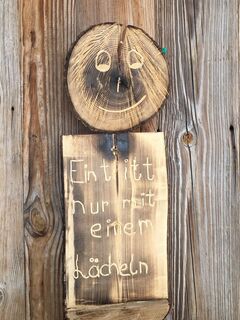 Eintritt
nur mit
einem
Lächeln